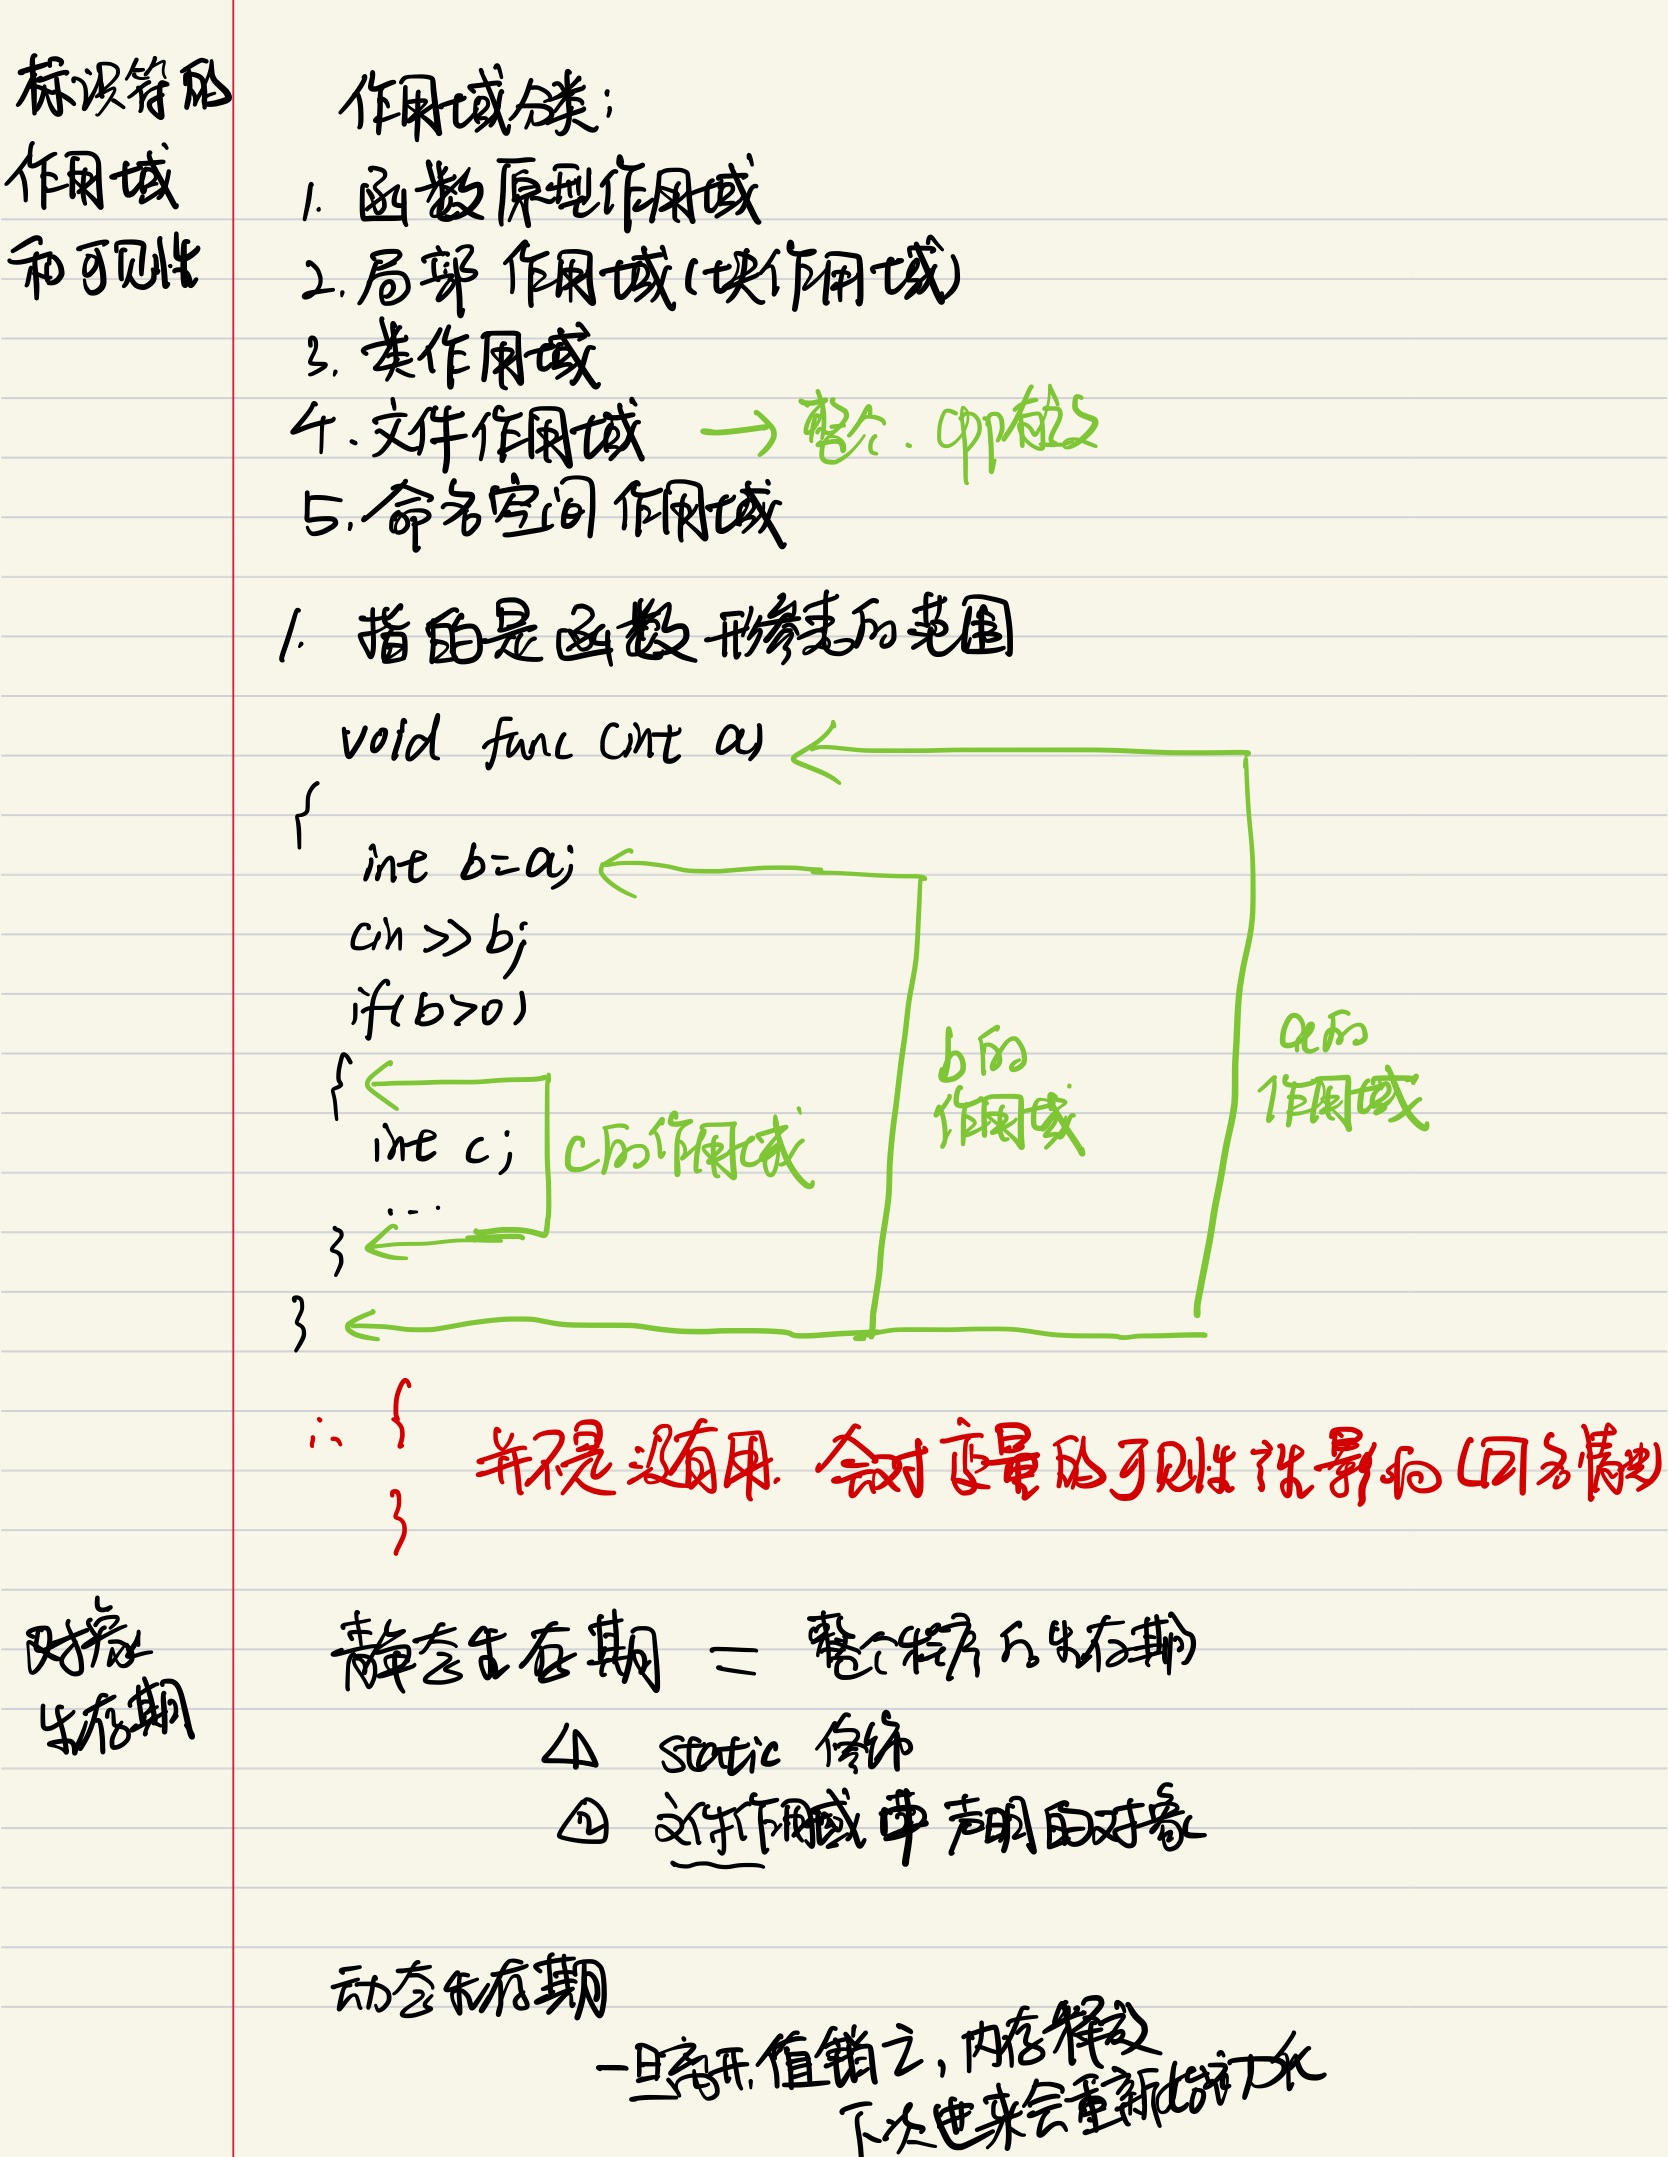 标识符的
作用域
和可见性
作用域分类:
1. 函数原型作用域
2. 局部作用域(块作用域)
3. 类作用域
4. 文件作用域 → 整个.cpp有效
5. 命名空间作用域
1. 指的是函数形参表的范围
void func (int a)
{
int b=a;
cin >> b;
if(b>0)
{
int c;
...
}
}
c的作用域
b的
作用域
a的
作用域
∴ {
并不是没有用. 会对变量的可见性产生影响(同名情况)
}
对象
生存期
静态生存期 = 整个程序的生存期
① static 修饰
② 文件作用域中声明的对象
动态生存期
一旦离开,值销亡,内存释放
下次进来会重新